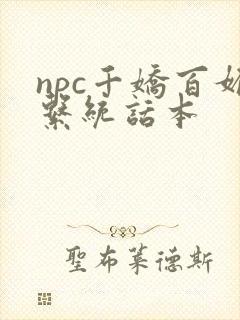 npc千嬌百媚
繫統話本
聖布萊德斯